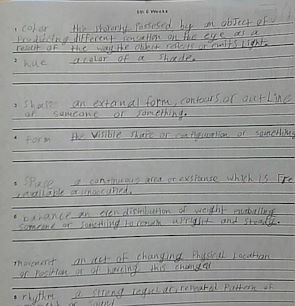 6th 6 Weeks
1. Color the property possessed by an object of
producing different sensation on the eye as a
result of the way the object reflects or emits light.
2 hue a color of a shade.
3 shape an external form, contours or outline
of someone or something.
4 form the visible shape or configuration of something
5 space a continuous area or expanse which is free
, available or unoccupied.
6 balance an even distribution of weight enabling
someone or something to remain upright and steady.
7 movement an act of changing physical location
or position or of having this changed
8 rhythm a strong regular, repeated pattern of
or sound